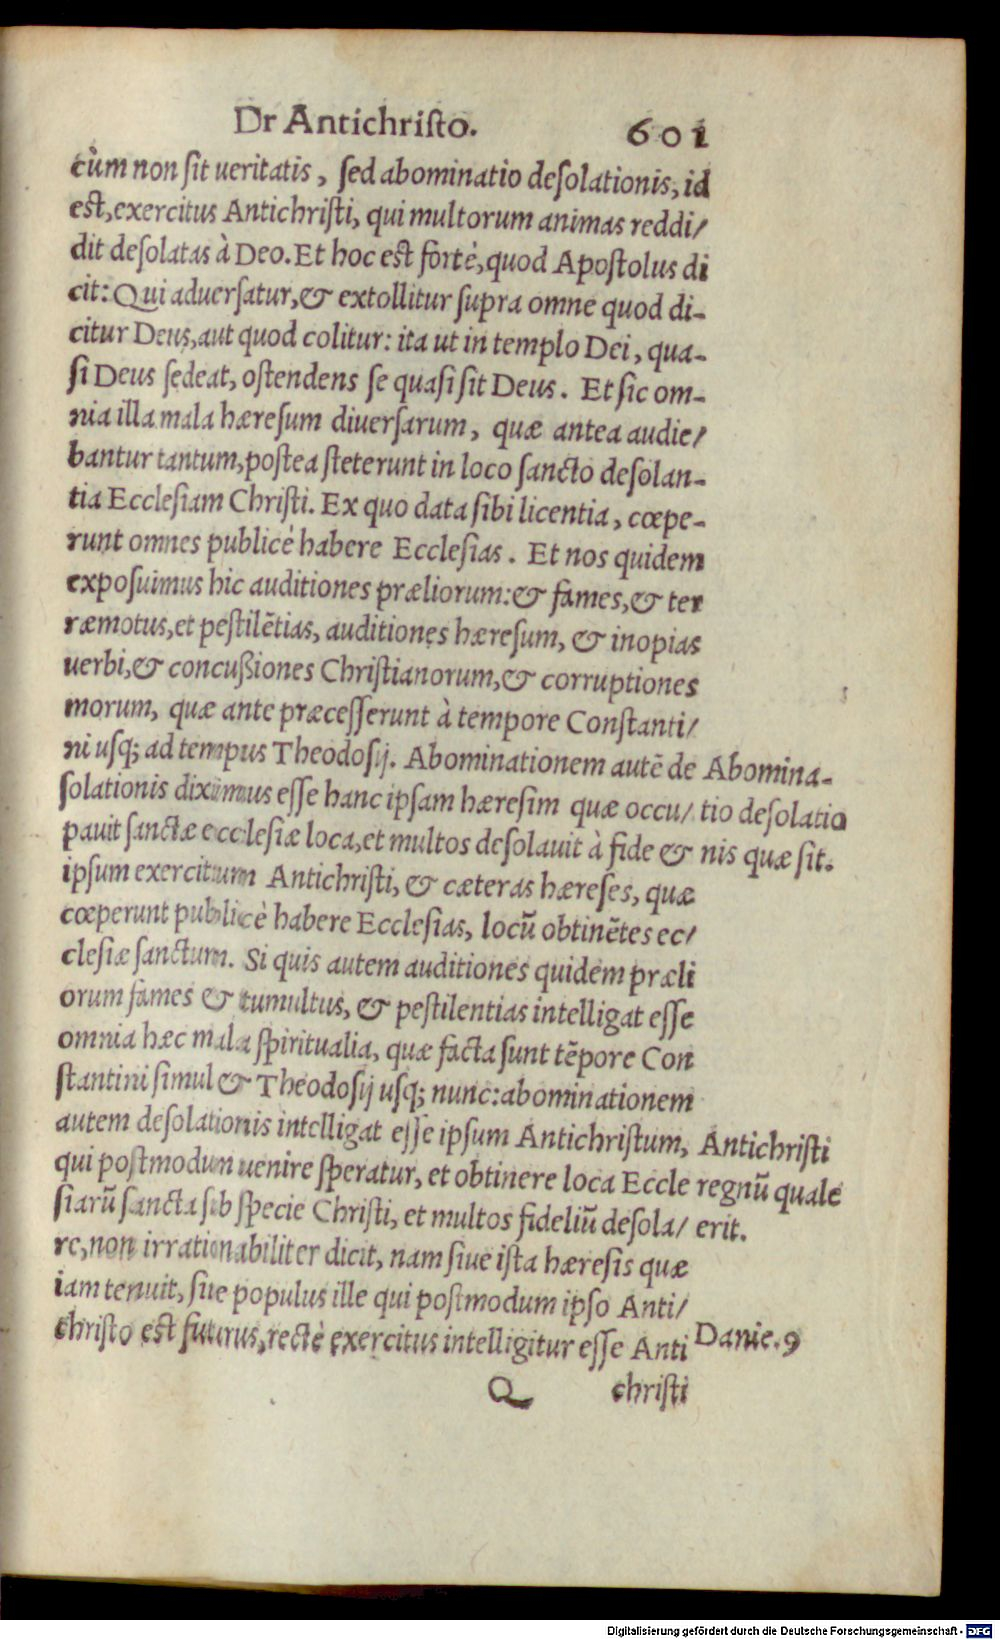 Dr Antichriſto.
601
cùm non ſit ueritatis, ſed abominatio deſolationis, id
est, exercitus Antichriſti, qui multorum animas reddi/
dit deſolatas à Deo. Et hoc est fortè, quod Apoſtolus di
cit: Qui aduerſatur, & extollitur ſupra omne quod di-
citur Deus, aut quod colitur: ita ut in templo Dei, qua-
ſi Deus ſedeat, oſtendens ſe quaſi ſit Deus. Et ſic om-
nia illa mala hæreſum diuerſarum, quæ antea audie/
bantur tantum, poſtea ſteterunt in loco ſancto deſolan-
tia Eccleſiam Chriſti. Ex quo data ſibi licentia, cœpe-
runt omnes publicè habere Eccleſias. Et nos quidem
expoſuimus hic auditiones præliorum: & fames, & ter
ræmotus, et peſtilẽtias, auditiones hæreſum, & inopias
uerbi, & concußiones Chriſtianorum, & corruptiones
morum, quæ ante præceſſerunt à tempore Conſtanti/
ni uſq; ad tempus Theodoſij. Abominationem autẽ de
ſolationis diximus eſſe hanc ipſam hæreſim quæ occu/
pauit ſanctæ eccleſiæ loca, et multos deſolauit à fide &
ipſum exercitum Antichriſti, & cæteras hæreſes, quæ
cœperunt publicè habere Eccleſias, locũ obtinẽtes ec/
cleſiæ ſanctum. Si quis autem auditiones quidem præli
orum fames & tumultus, & peſtilentias intelligat eſſe
omnia hæc mala ſpiritualia, quæ facta ſunt tẽpore Con
ſtantini ſimul & Theodoſij uſq; nunc: abominationem
autem deſolationis intelligat eſſe ipſum Antichriſtum,
qui poſtmodun uenire ſperatur, et obtinere loca Eccle
ſiarũ ſancta ſub ſpecie Chriſti, et multos fideliũ deſola/
re, non irrationabiliter dicit, nam ſiue iſta hæreſis quæ
iam tenuit, ſiue populus ille qui poſtmodum ipſo Anti/
chriſto est futurus, rectè exercitus intelligitur eſſe Anti
Abomina-
tio deſolatio
nis quæ ſit.
Antichriſti
regnũ quale
erit.
Danie. 9
Q
chriſti
Digitalisierung gefördert durch die Deutsche Forschungsgemeinschaft - DFG